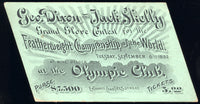 Geo. Dixon Jack Skelly
Grand Glove Contest for the
Featherweight Championship of the World.
Tuesday, September 6th 1892
at the Olympic Club.
Purse $7,500
Tickets